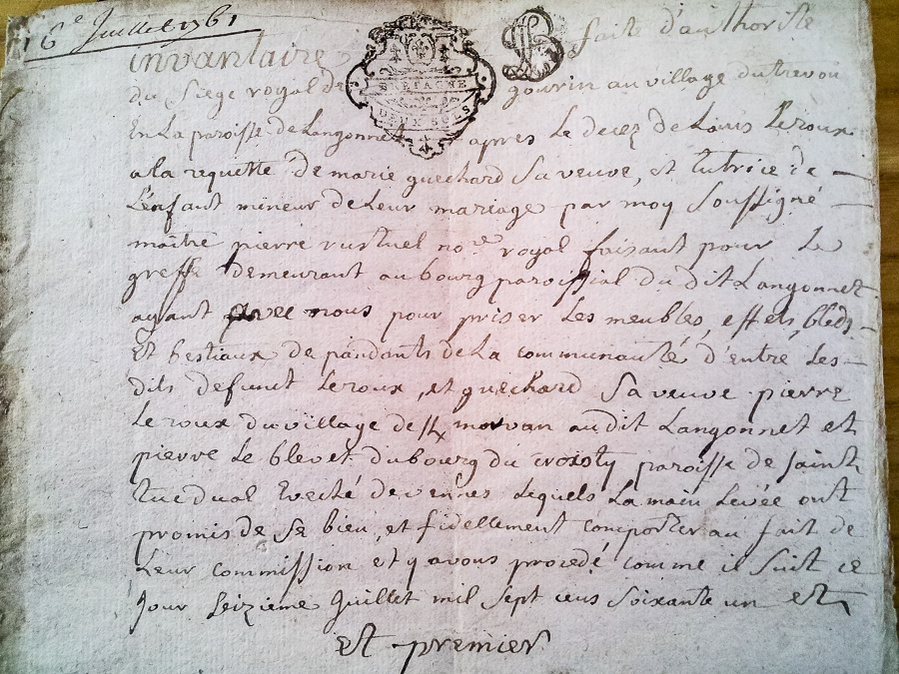 16e Juillet 1761
invantaire fait d'authorité
BRETAGNE
DEUX SOLS
du Siege royal de gourin au village dutrevou
En La paroisse de Langonnet apres Le decez de Louis Leroux
a la requette de marie guechard Sa veuve, et tutrice de
L'enfant mineur de Leur mariage par moy Soussigné
maitre pierre rustuel nore royal faisant pour Le
greffe demeurant au bourg paroissial du dit Langonnet
ayant avec nous pour priser Les meubles, effets, bleds
Et bestiaux de pandants de La communauté d'entre Les
dits defunt Leroux, et guechard Sa veuve pierre
Le roux du village de morvan audit Langonnet et
pierre Le blevet dubourg du croisty paroisse de saint
tuedual Eveché de vennes Lequels La main Levée ont
promis de Se bien, et fidellement comporter au fait de
Leur commission et y avons procedé comme il Suit ce
jour Seizieme Juillet mil Sept cens Soixante un et
et premier